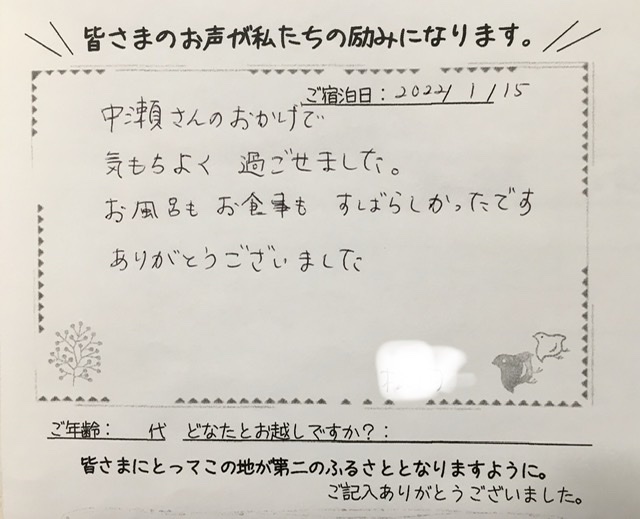 皆さまのお声が私たちの励みになります。
ご宿泊日：2022/1/15
中瀬さんのおかげで
気もちよく 過ごせました。
お風呂も お食事も すばらしかったです
ありがとうございました
ご年齢： 代 どなたとお越しですか？：
皆さまにとってこの地が第二のふるさととなりますように。
ご記入ありがとうございました。